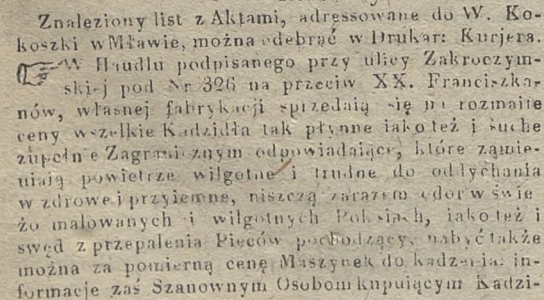 Znaleziony list z Aktami, adressowane do W. Ko-
koszki w Mławie, można odebrać w Drukar: Kurjera.
W Handlu podpisanego przy ulicy Zakroczym-
skiej pod Nr 326 na przeciw XX. Franciszka-
nów, własnej fabrykacji sprzedają się po rozmaite
ceny wszelkie Kadzidła tak płynne iako też i suche
zupełnie Zagranicznym odpowiadaiące, które zamie-
niaią powietrze wilgotne i trudne do oddychania
w zdrowe i przyiemne, niszczą zarazem odor w świe
żo malowanych i wilgotnych Pokoiach, iako też i
swęd z przepalenia Pieców pochodzący, nabyć także
można za pomierną cenę Maszynek do kadzenia. in-
formacje zaś Szanownym Osobom kupuiącym Kadzi-